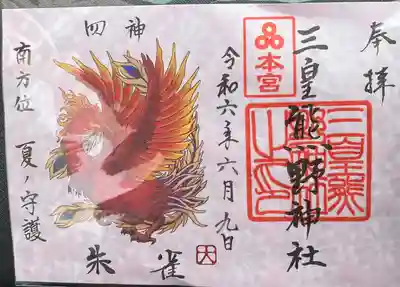 奉拝
本宮
三皇熊野神社
令和六年六月九日
四神
朱雀
大
南方位
夏ノ守護